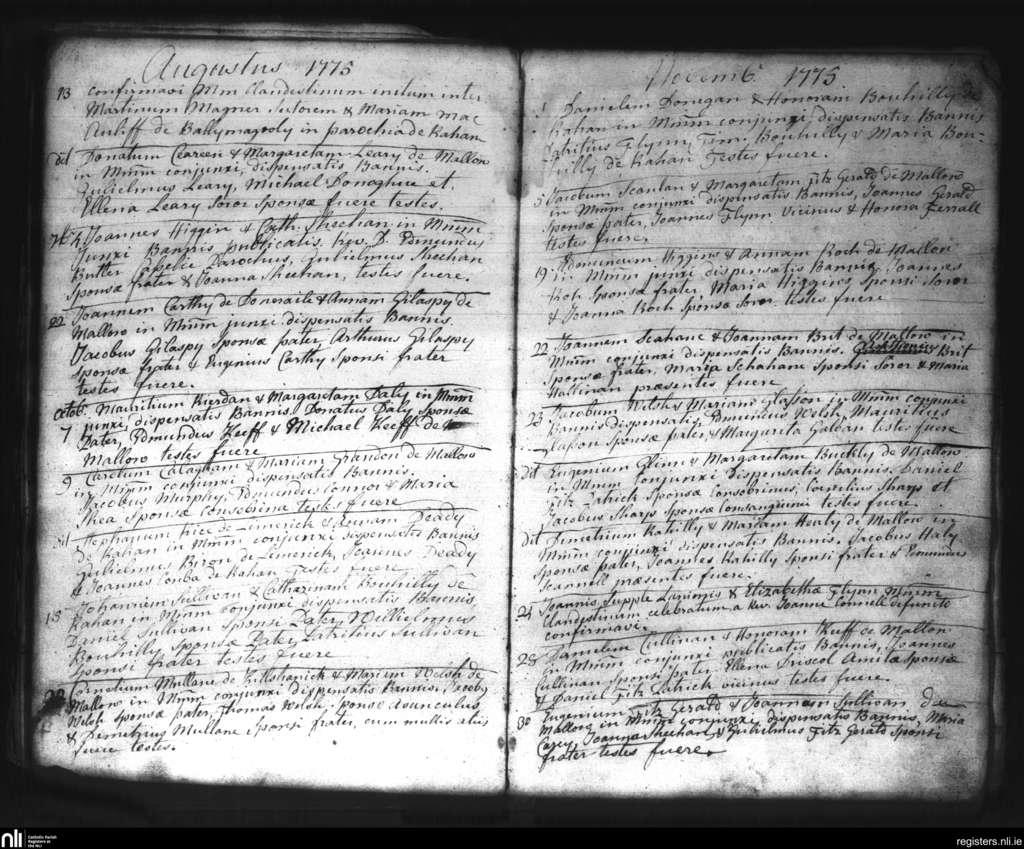 Augustus 1775
13 Confirmavi Mm Clandestinum initum inter
Martinum Magner Sutorem & Mariam Mac
Auliff de Ballymagooly in parochia de Rahan
dit Donatum Ceareen & Margaretam Leary de Mallow
in Mmm conjunxi, dispensatis Bannis.
Gulielmus Leary, Michael Donaghue et
Ellena Leary Soror Sponsæ fuere testes.
Joannes Higgin & Cath. Sheehan in Mmm
Junxi Bannis publicatis. Rev. D. Edmundus
Butler Parochus, Gulielmus Sheehan
Sponsæ frater & Joanna Sheehan, testes fuere.
22 Joannem Carthy de Doneraile & Annam Gilaspy de
Mallow in Mmm junxi dispensatis Bannis.
Jacobus Gilaspy Sponsæ pater, Arthurus Gilaspy
Sponsæ frater & Eugenius Carthy Sponsi frater
testes fuere.
Octob. Mauritium Rierdan & Margaretam Daly in Mmm
7 junxi, dispensatis Bannis. Donatus Daly Sponsæ
Pater, Edmundus Keeff & Michael Keeff de
Mallow testes fuere
9 Carolum Calaghan & Mariam Grandon de Mallow
in Mmm conjunxi dispensatis Bannis.
Jacobus Murphy, Edmundus Connor & Maria
Shea Sponsæ consobrina testes fuere
dit Stephanum Price de Limerick & Annam Deady
de Rahan in Mmm conjunxi dispensatis Bannis
Gulielmus Biron de Limerick, Joannes Deady
& Joannes Comba de Rahan Testes fuere
15 Johannem Sullivan & Catharinam Bouhilly de
Rahan in Mmm conjunxi dispensatis Bannis
Daniel Sullivan Sponsi Pater, Willielmus
Bouhilly Sponsæ Pater, Patritius Sullivan
Sponsi frater testes fuere
Cornelium Mullane de Killshanick & Mariam Welsh de
Mallow in Mmm conjunxi dispensatis Bannis, Jacobus
Welsh Sponsæ pater, Thomas Welsh Sponsæ Avunculus
& Demetrius Mullane Sponsi frater, cum multis aliis
fuere testes.
Novemb. 1775
1 Danielem Donegan & Honoram Bouhilly de
Rahan in Mmm conjunxi dispensatis Bannis
Patritius Flynn, Tim. Bouhilly & Maria Bou-
hilly de Rahan Testes fuere.
5 Jacobum Scanlan & Margaretam Fitz Gerald de Mallow
in Mmm conjunxi dispensatis Bannis, Joannes Gerald
Sponsæ pater, Joannes Flynn Vicinus & Honora Ferrall
testes fuere.
19 Edmundum Higgins & Annam Roch de Mallow
in Mmm junxi dispensatis Bannis, Joannes
Roch Sponsæ frater, Maria Higgins Sponsi Soror
& Joanna Roch Sponsæ Soror testes fuere
22 Joannem Seahane & Joannam Brit de Mallow in
Mmm conjunxi dispensatis Bannis. Brit
Sponsæ frater, Maria Schahane Sponsi Soror & Maria
Hallinan præsentes fuere
23 Jacobum Welsh & Mariam Glasson in Mmm conjunxi
Bannis dispensatis, Edmundus Welsh, Mauritius
Glasson Sponsæ pater & Margarita Galdan testes fuere
dit Eugenium Glinn & Margaretam Buckly de Mallow
in Mmm Conjunxi dispensatis Bannis. Daniel
Fitz Patrick Sponsæ Consobrinus, Cornelius Sharp et
Jacobus Sharp Sponsæ Consanguinei testes fuere
dit Dimetrium Rahilly & Mariam Healy de Mallow in
Mmm conjunxi dispensatis Bannis. Jacobus Haly
Sponsæ pater, Joannes Rahilly Sponsi frater & Edmundus
Scannell præsentes fuere.
24 Joannis Supple & Elizabethæ Flynn Mmm
Clandestinum celebratum a Rev. Joanne Connell defuncto
confirmavi.
28 Danielem Cullinan & Honoram Keeff de Mallow
in Mmm conjunxi publicatis Bannis, Joannes
Cullinan Sponsi pater, Ellena Driscol Amita Sponsæ
& Daniel Fitz Patrick vicinus testes fuere.
30 Eugenium Fitz Gerald & Joannam Sullivan de
Mallow in Mmm conjunxi, dispensatis Bannis, Maria
Carey, Joanna Sheehan, & Gulielmus Fitz Gerald Sponsi
frater testes fuere.
nli Catholic Parish Registers at the NLI
registers.nli.ie